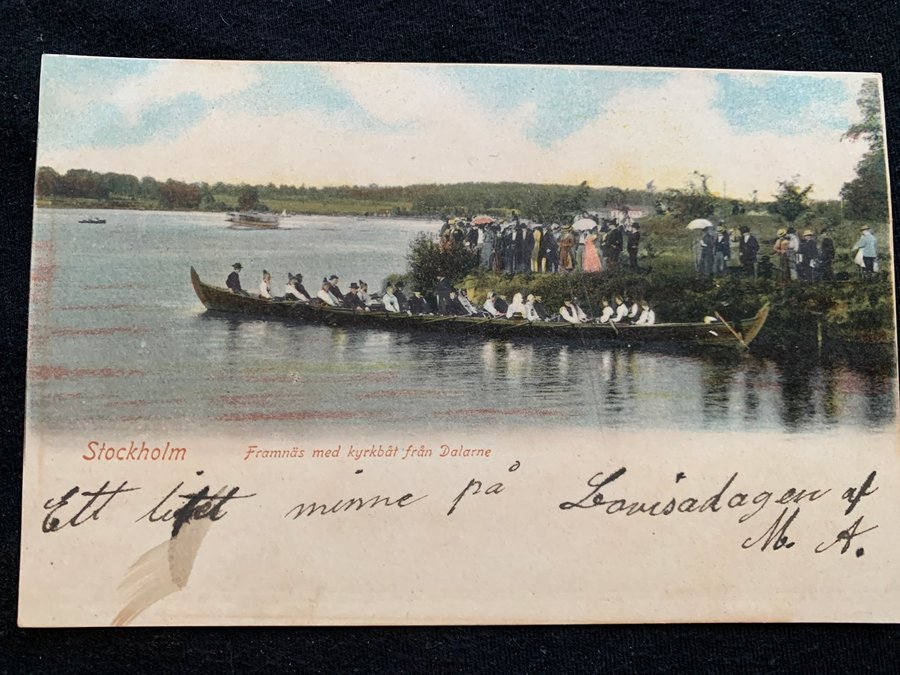 Stockholm Framnäs med kyrkbåt från Dalarne
Ett litet minne på Lovisadagen af
M. A.